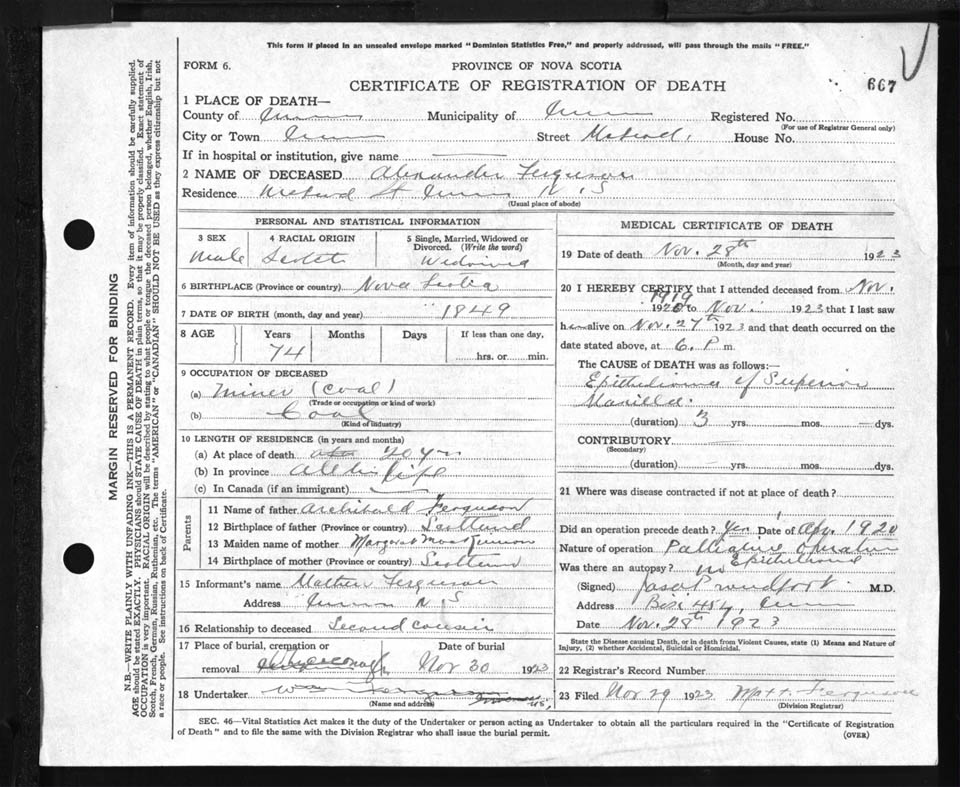 This form if placed in an unsealed envelope marked "Dominion Statistics Free," and properly addressed, will pass through the mails "FREE."
FORM 6.
PROVINCE OF NOVA SCOTIA
CERTIFICATE OF REGISTRATION OF DEATH
667
1 PLACE OF DEATH—
County of
Municipality of
Registered No.
(For use of Registrar General only)
City or Town
Street
House No.
If in hospital or institution, give name
2 NAME OF DECEASED Alexander Ferguson
Residence St N S
(Usual place of abode)
PERSONAL AND STATISTICAL INFORMATION
3 SEX
Male
4 RACIAL ORIGIN
Scotch
5 Single, Married, Widowed or Divorced. (Write the word)
Widowed
6 BIRTHPLACE (Province or country) Nova Scotia
7 DATE OF BIRTH (month, day and year) 1849
8 AGE
Years
Months
Days
If less than one day,
74
hrs. or min.
9 OCCUPATION OF DECEASED
(a) Miner (Coal)
(Trade or occupation or kind of work)
(b) Coal
(Kind of industry)
10 LENGTH OF RESIDENCE (in years and months)
(a) At place of death 20 yrs
(b) In province All his life
(c) In Canada (if an immigrant)
Parents
11 Name of father Archibald Ferguson
12 Birthplace of father (Province or country) Scotland
13 Maiden name of mother Margaret MacKinnon
14 Birthplace of mother (Province or country) Scotland
15 Informant's name Mathew Ferguson
Address N S
16 Relationship to deceased Second cousin
17 Place of burial, cremation or removal
Date of burial
Nov 30 1923
18 Undertaker
(Name and address)
MEDICAL CERTIFICATE OF DEATH
19 Date of death Nov. 28th 1923
(Month, day and year)
20 I HEREBY CERTIFY that I attended deceased from Nov.
1919
192 to Nov. 1923 that I last saw
him alive on Nov. 27th 1923 and that death occurred on the
date stated above, at 6. P m.
The CAUSE of DEATH was as follows:—
Epithelioma of Superior
Maxilla.
(duration) 3 yrs. mos. dys.
CONTRIBUTORY
(Secondary)
(duration) yrs. mos. dys.
21 Where was disease contracted if not at place of death?
Did an operation precede death? Yes, Date of Apr. 1920
Nature of operation Palliative Operation
Epithelioma
Was there an autopsy? no
(Signed) M.D.
Address Box 454,
Date Nov. 28th 1923
State the Disease causing Death, or in death from Violent Causes, state (1) Means and Nature of Injury, (2) whether Accidental, Suicidal or Homicidal.
22 Registrar's Record Number
23 Filed Nov 29 1923 Matt. Ferguson
(Division Registrar)
SEC. 46—Vital Statistics Act makes it the duty of the Undertaker or person acting as Undertaker to obtain all the particulars required in the "Certificate of Registration
of Death" and to file the same with the Division Registrar who shall issue the burial permit.
(OVER)
MARGIN RESERVED FOR BINDING
N.B.—WRITE PLAINLY WITH UNFADING INK—THIS IS A PERMANENT RECORD. Every item of information should be carefully supplied.
AGE should be stated EXACTLY. PHYSICIANS should STATE CAUSE OF DEATH in plain terms, so that it may be properly classified. Exact statement of
OCCUPATION is very important. RACIAL ORIGIN will be described by stating to what people or tongue the deceased person belonged, whether English, Irish,
Scotch, French, German, Russian, Ruthenian, etc. The terms "AMERICAN" or "CANADIAN" SHOULD NOT BE USED as they express citizenship but not
a race or people. See instructions on back of Certificate.